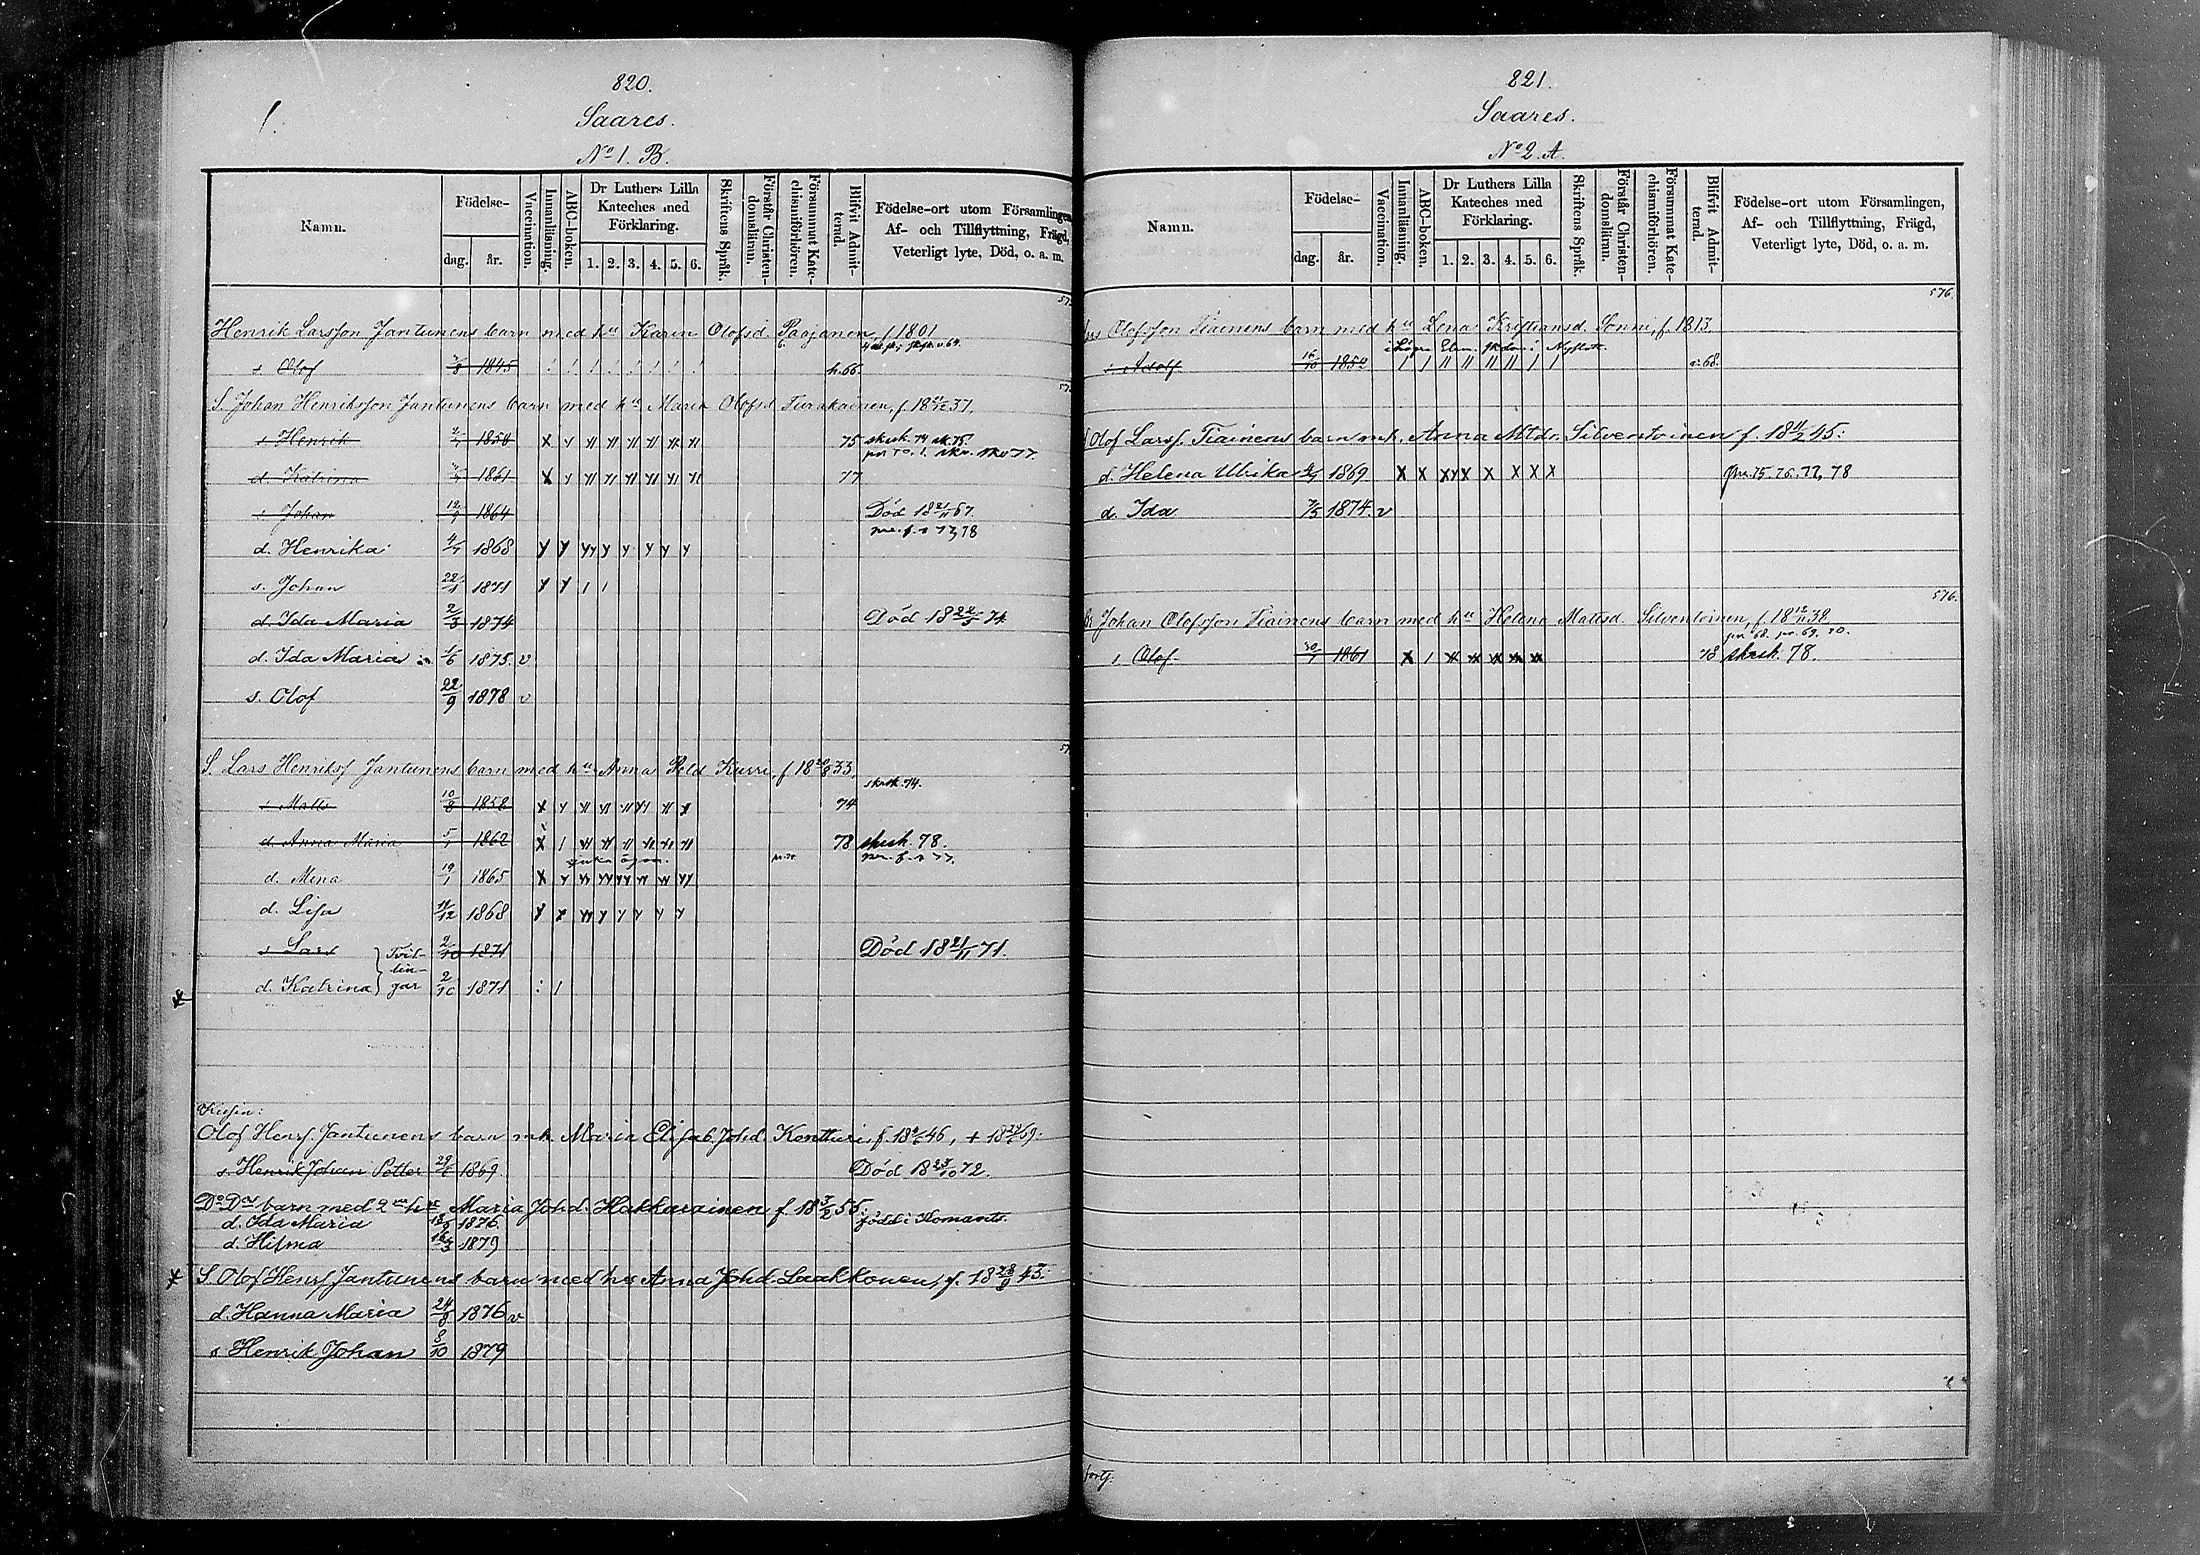 820.
Saares.
No 1. B.
Namn. Födelse- dag. år. Vaccination. Innanläsning. ABC-boken. Dr Luthers Lilla Kateches med Förklaring. 1. 2. 3. 4. 5. 6. Skriftens Språk. Förstår Christendomsläran. Försummat Katechismiförhören. Blifvit Admitterad. Födelse-ort utom Församlingen, Af- och Tillflyttning, Frägd, Veterligt lyte, Död, o. a. m.
Henrik Larsson Jantunens barn med hu Karin Olofsd. Paajanen, f. 1801
s Olof 1845 h. 66.
S. Johan Henriksson Jantunens barn med hu Maria Olofsd Turakainen, f. 18 37.
s Henrik 1858 75
d. Katrina 1861 77
s Johan 12/9 1864 Död 18 21/11 67.
d. Henrika 1868
s. Johan 22/1 1871
d. Ida Maria 2/3 1874 Död 18 74
d. Ida Maria 1/6 1875. v
s. Olof 22/9 1878 v
S. Lars Henrikss Jantunens barn med hu Anna Kurri, f 18 33,
skrsk. 74.
s Matts 10/8 1858 74
d. Anna Maria 5/1 1862 78 skrsk. 78.
d. Mina 19/1 1865
d. Lisa 11/12 1868
s Lars 2/10 1871 Död 18 21/11 71.
Tvillingar
d. Katrina 2/10 1871
Olof Henrs. Jantunens barn mh Maria Elisab. Johd. Kontturi, f. 18 46, + 18 69.
s. Henrik Johan Petter 29/6 1869. Död 18 23/10 72.
Do Dos barn med 2dra hu Maria Johd. Hakkarainen f. 18 3/2 55. född i Ilomants.
d. Ida Maria 1876
d. Hilma 1879
S. Olof Henrs Jantunens barn med hu Anna Johd. Laakkonen, f. 18 28/9 43.
d. Hanna Maria 24/8 1876 v
s Henrik Johan 8/10 1879
821.
Saares.
No 2. A.
Namn. Födelse- dag. år. Vaccination. Innanläsning. ABC-boken. Dr Luthers Lilla Kateches med Förklaring. 1. 2. 3. 4. 5. 6. Skriftens Språk. Förstår Christendomsläran. Försummat Katechismiförhören. Blifvit Admitterad. Födelse-ort utom Församlingen, Af- och Tillflyttning, Frägd, Veterligt lyte, Död, o. a. m.
576.
Olofsson Tiainens barn med hu Lena Kristiansd. Sonni, f. 1813.
s. Adolf 16/10 1852 v. 68.
Olof Larss. Tiainens barn mh. Anna Mtdr. Silventoinen f. 18 11/2 45:
d. Helena Ulrika 1869 75. 76. 77, 78
d. Ida 7/5 1874. v
576.
Johan Olofsson Tiainens barn med hu Helena Mattsd. Silventoinen, f. 18 12/11 38.
s. Olof 30/7 1861 78 skrsk. 78.
forts.